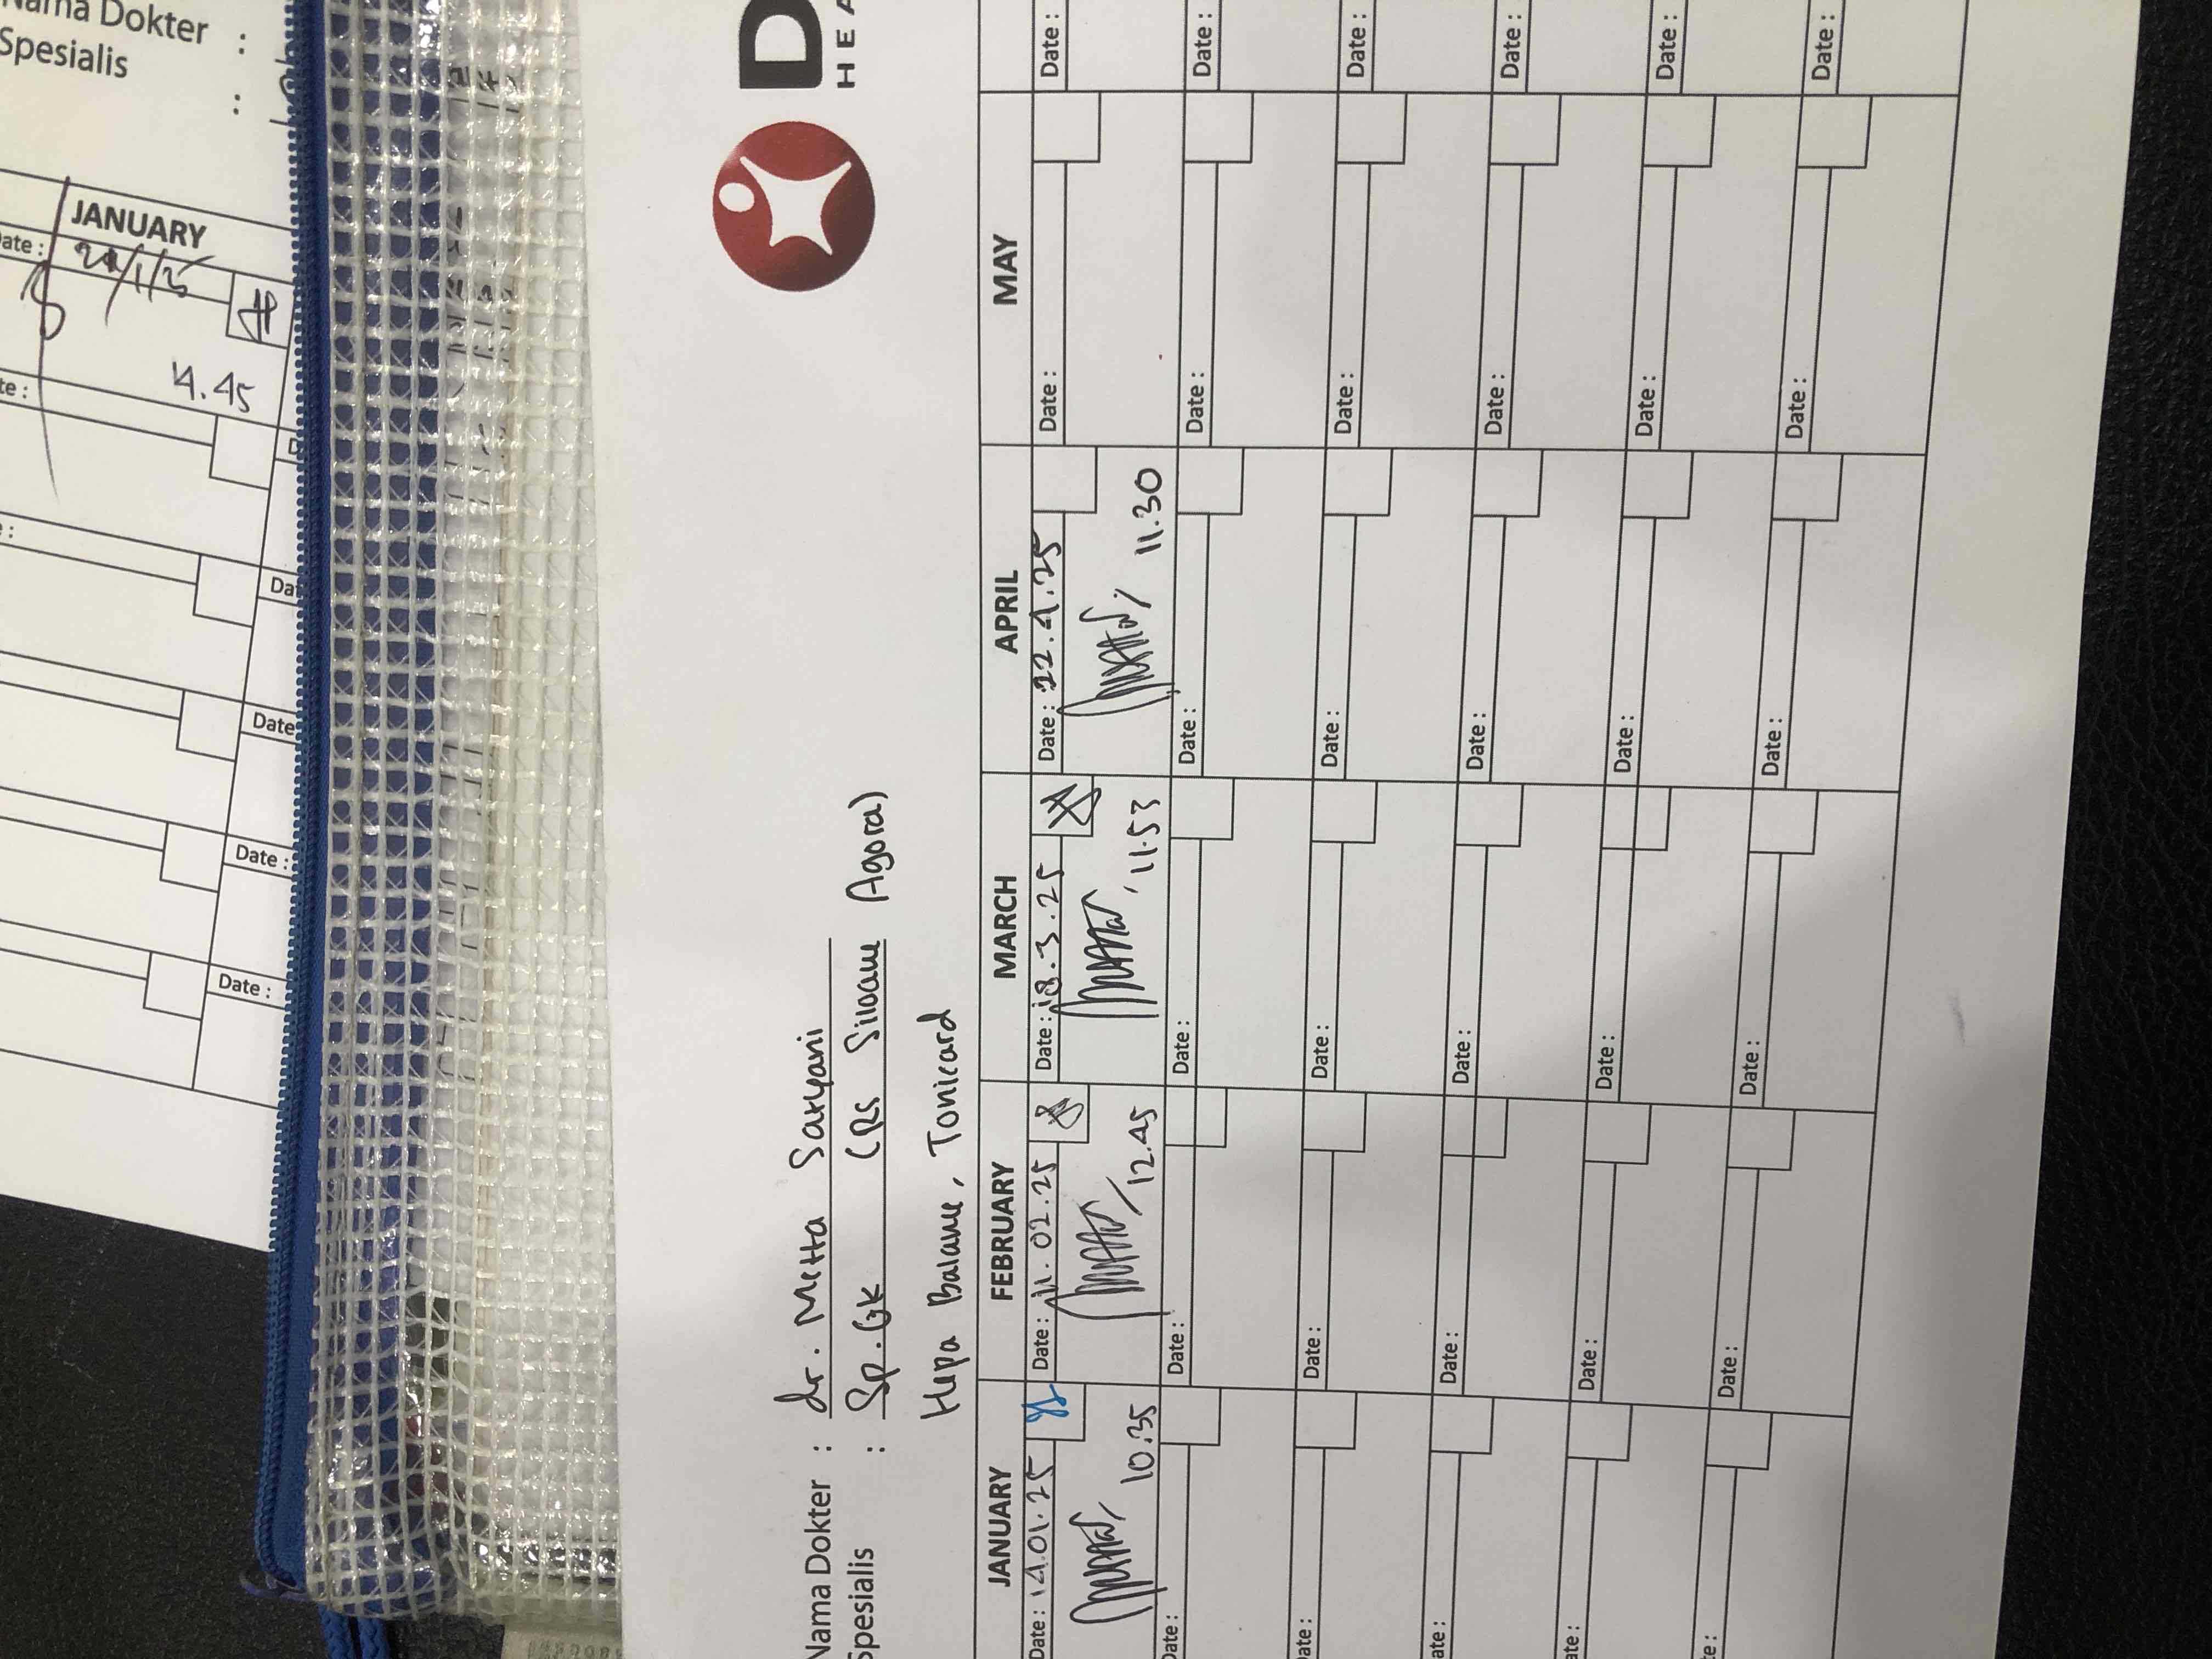 Nama Dokter :
Spesialis :
JANUARY
Date :
14.45
Date :
Date :
Date :
Date :
D
HEA
Nama Dokter : dr. Metta Satyani
Spesialis : Sp.GK (RS Siloam Agora)
Hepa Balance, Tonicard
JANUARY FEBRUARY MARCH APRIL MAY
Date : 14.01.25 Date : 11.02.25 Date : 18.3.25 Date : 22.4.25 Date : Date :
10.35 12.45 11.53 11.30
Date : Date : Date : Date : Date : Date :
Date : Date : Date : Date : Date : Date :
Date : Date : Date : Date : Date : Date :
Date : Date : Date : Date : Date : Date :
Date : Date : Date : Date : Date : Date :